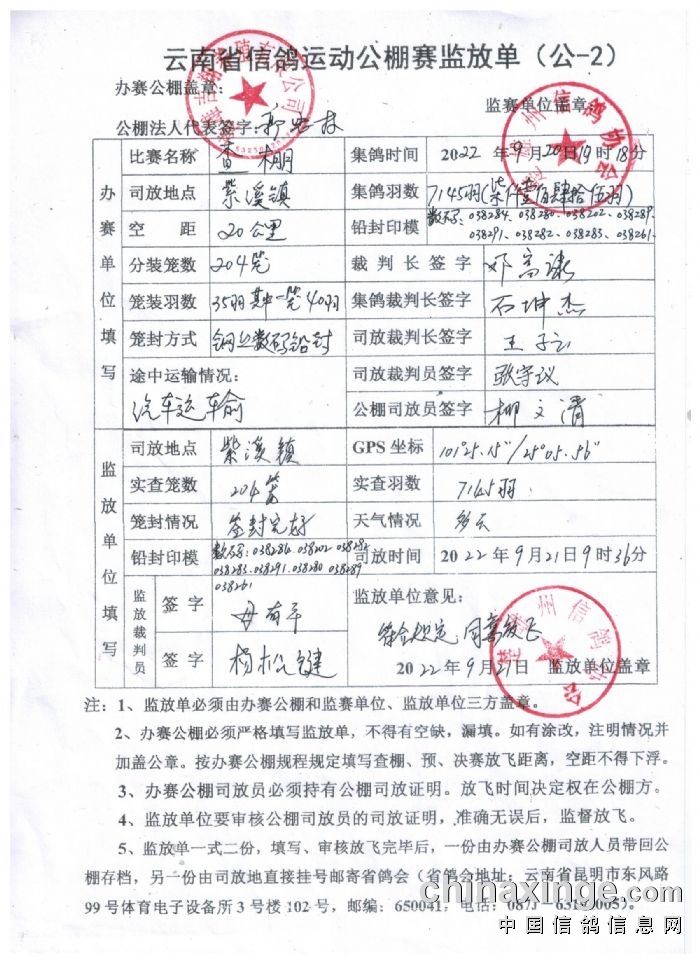 云南省信鸽运动公棚赛监放单（公-2）
办赛公棚盖章：
监赛单位盖章
公棚法人代表签字：
办赛单位填写
比赛名称 查棚 集鸽时间 2022年9月20日19时18分
司放地点 紫溪镇 集鸽羽数 7145羽(柒仟壹佰肆拾伍羽)
空距 20公里 铅封印模 数码: 038284、038280、038202、038289、
038291、038282、038283、038261、
分装笼数 204笼 裁判长签字
笼装羽数 35羽其中一笼40羽 集鸽裁判长签字 石坤杰
笼封方式 钢丝数码铅封 司放裁判长签字
途中运输情况： 司放裁判员签字 张宇议
汽车运输 公棚司放员签字 柳文清
监放单位填写
司放地点 紫溪镇 GPS坐标 101°25.15"/25°05.56"
实查笼数 204笼 实查羽数 7145羽
笼封情况 笼封完好 天气情况 多云
铅封印模 数码: 038284.038202 038282
038283.038291.038280 038289
038261
司放时间 2022年9月21日9时36分
监放裁判员 签字 监放单位意见：
符合规定,同意放飞
签字 杨松键 2022年9月21日 监放单位盖章
注：1、监放单必须由办赛公棚和监赛单位、监放单位三方盖章。
2、办赛公棚必须严格填写监放单，不得有空缺，漏填。如有涂改，注明情况并
加盖公章。按办赛公棚规程规定填写查棚、预、决赛放飞距离，空距不得下浮。
3、办赛公棚司放员必须持有公棚司放证明。放飞时间决定权在公棚方。
4、监放单位要审核公棚司放员的司放证明，准确无误后，监督放飞。
5、监放单一式二份，填写、审核放飞完毕后，一份由办赛公棚司放人员带回公
棚存档，另一份由司放地直接挂号邮寄省鸽会（省鸽会地址：云南省昆明市东风路
99号体育电子设备所3号楼102号，邮编：650041，电话：0871-63190653）。
chinaxinge.com
中国信鸽信息网